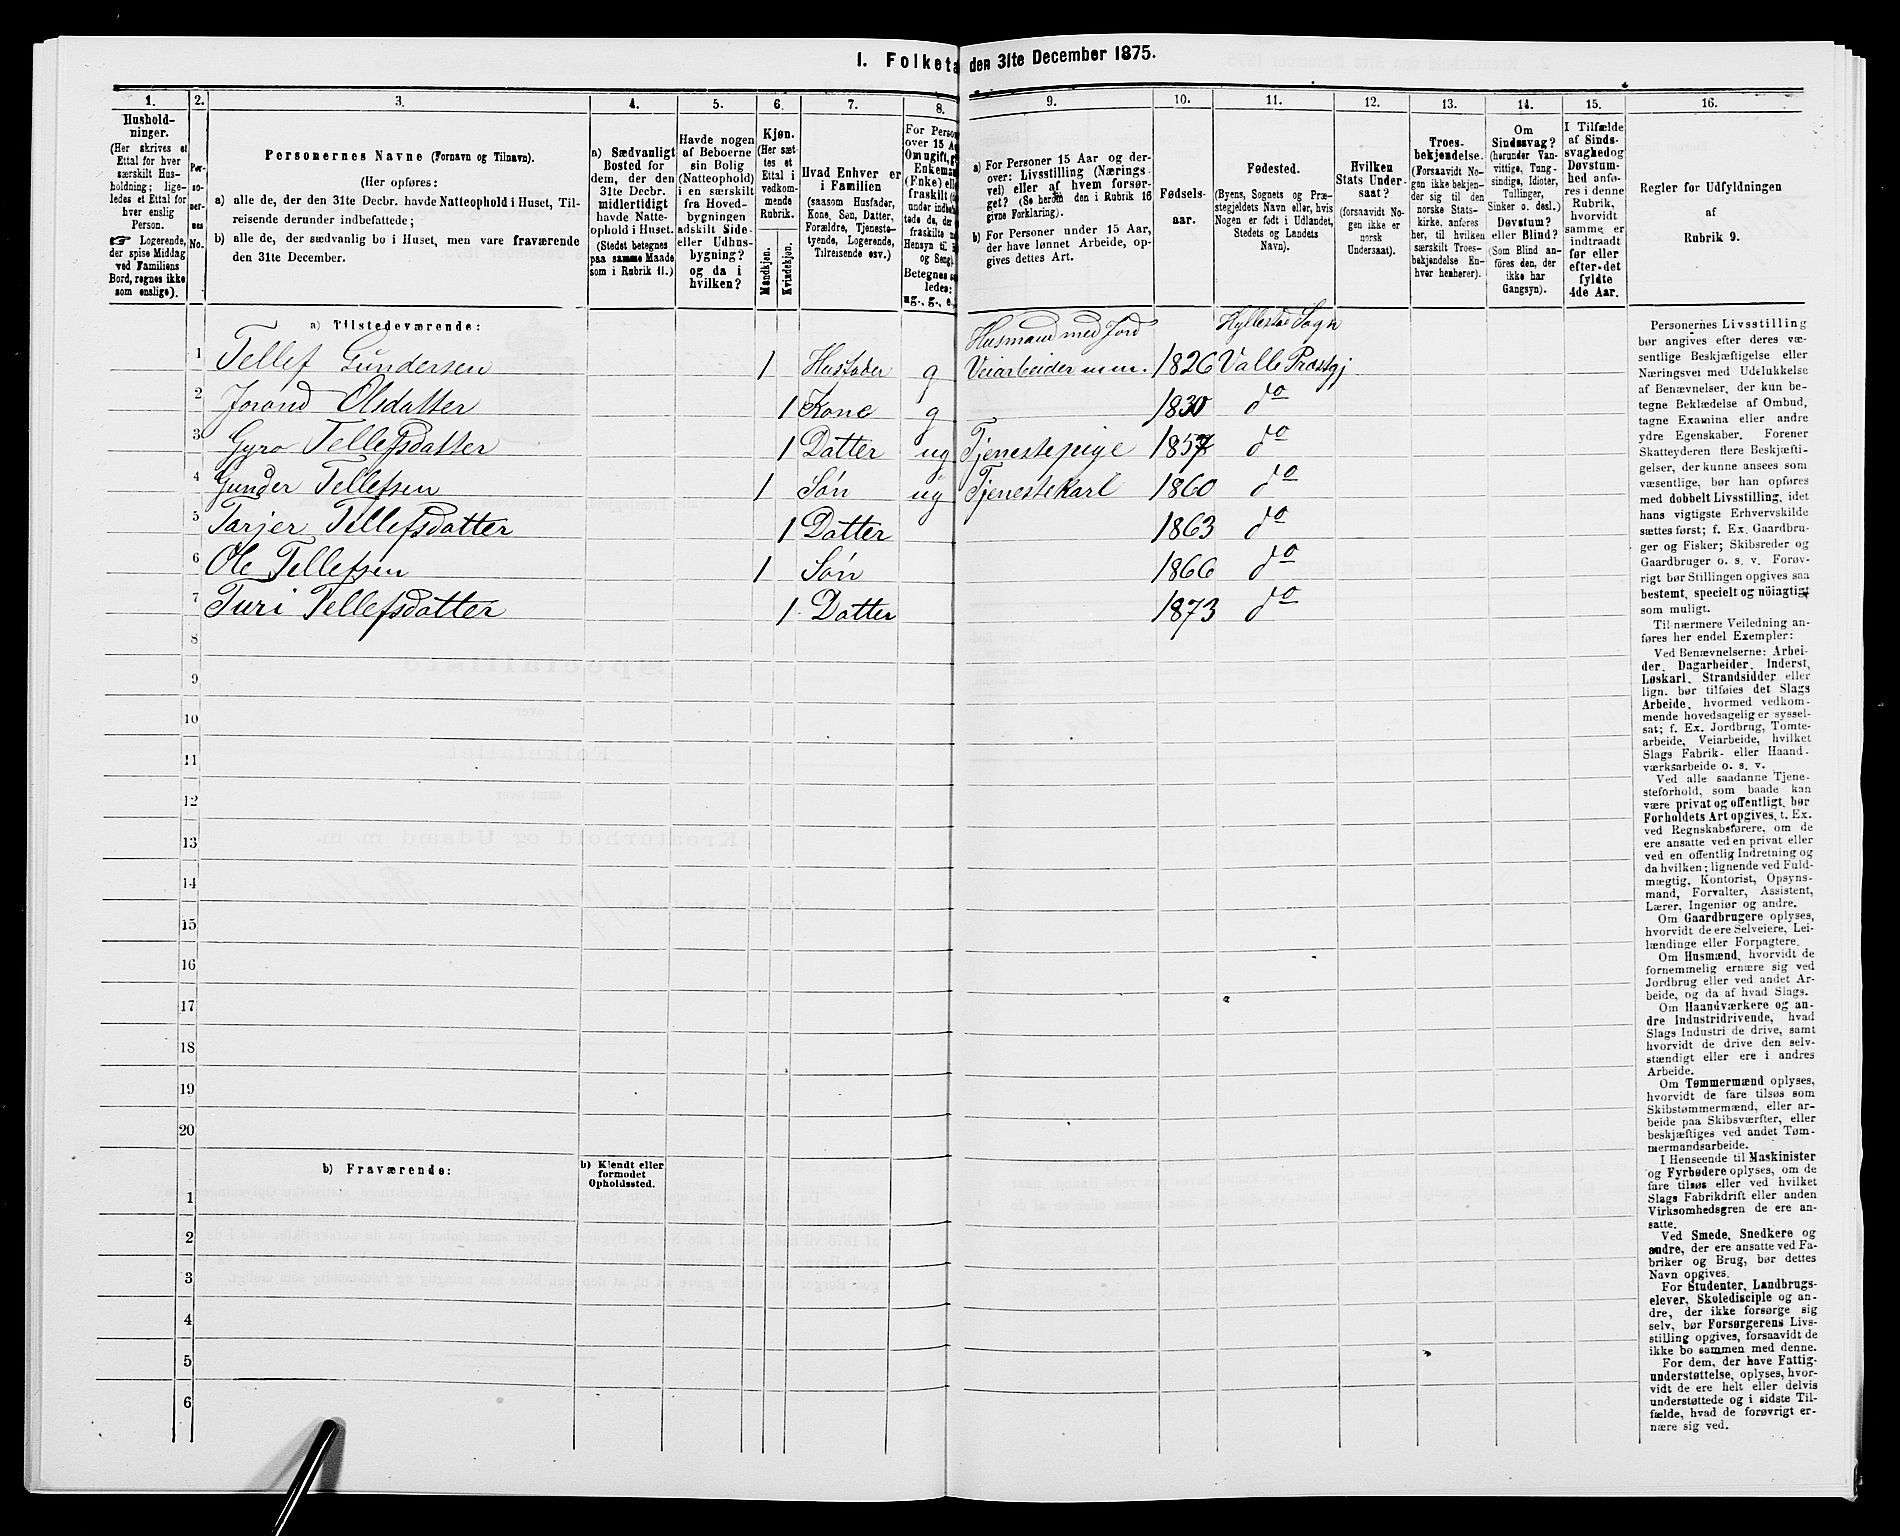 1. Folketa den 31te December 1875.
1. 2. 3. 4. 5. 6. 7. 8. 9. 10. 11. 12. 13. 14. 15. 16.
Hushold-
ninger.
(Her skrives et
Ettal for hver
særskilt Hus-
holdning; lige-
ledes et Ettal for
hver enslig
Person.
☞ Logerende,
der spise Middag
ved Familiens
Bord, regnes ikke
som enslige).
Per-
so-
ner-
nes
No.
Personernes Navne (Fornavn og Tilnavn).
(Her opføres:
a) alle de, der den 31te Decbr. havde Natteophold i Huset, Til-
reisende derunder indbefattede;
b) alle de, der sædvanlig bo i Huset, men vare fraværende
den 31te December.
a) Sædvanligt
Bosted for
dem, der den
31te Decbr.
midlertidigt
havde Natte-
ophold i Huset.
(Stedet betegnes
paa samme Maade
som i Rubrik 11.)
Havde nogen
af Beboerne
sin Bolig
(Natteophold)
i en særskilt
fra Hoved-
bygningen
adskilt Side-
eller Udhus-
bygning?
og da i
hvilken?
Kjøn.
(Her sæt-
tes et
Ettal i
vedkom-
mende
Rubrik.
Mandkjøn.
Kvindekjøn.
Hvad Enhver er
i Familien
(saasom Husfader,
Kone, Søn, Datter,
Forældre, Tjeneste-
tyende, Logerende,
Tilreisende osv.)
For Perso
over 15 A
Om ugift, g
Enkema
(Enke) ell
fraskilt (
under indbe
tede de, de
fraskilte
Hensyn til
og Seng)
Betegnes
ledes:
ug., g., e.
a) For Personer 15 Aar og der-
over: Livsstilling (Nærings-
vei) eller af hvem forsør-
get? (Se herom den i Rubrik 16
givne Forklaring).
b) For Personer under 15 Aar,
der have lønnet Arbeide, op-
gives dettes Art.
Fødsels-
aar.
Fødested.
(Byens, Sognets og Præ-
stegjeldets Navn eller, hvis
Nogen er født i Udlandet,
Stedets og Landets
Navn).
Hvilken
Stats Under-
saat?
(forsaavidt No-
gen ikke er
norsk
Undersaat).
Troes-
bekjendelse.
(Forsaavidt No-
gen ikke bekjen-
der sig til den
norske Stats-
kirke, anføres
her, til hvilken
særskilt Troes-
bekjendelse En-
hver henhører).
Om
Sindssvag?
(herunder Van-
vittige, Tung-
sindige, Idioter,
Tullinger,
Sinker o. desl.)
Døvstum?
eller Blind?
(Som Blind an-
føres den, der
ikke har
Gangsyn).
I Tilfælde
af Sinds-
svaghed og
Døvstum-
hed anfø-
res i denne
Rubrik,
hvorvidt
samme er
indtraadt
før eller
efter det
fyldte
4de Aar.
Regler for Udfyldningen
af
Rubrik 9.
a) Tilstedeværende:
Husmand med Jord Hyllestad Sogn
1 Tellef Gundersen 1 Husfader g Veiarbeider m.m. 1826 Valle Præstgj
2 Jorand Olsdatter 1 Kone g 1830 do
3 Gyro Tellefsdatter 1 Datter ug Tjenestepige 1857 do
4 Gunder Tellefsen 1 Søn ug Tjenestekarl 1860 do
5 Tarjer Tellefsdatter 1 Datter 1863 do
6 Ole Tellefsen 1 Søn 1866 do
7 Turi Tellefsdatter 1 Datter 1873 do
8
9
10
11
12
13
14
15
16
17
18
19
20
b) Fraværende:
b) Kjendt eller
formodet
Opholdssted.
1
2
3
4
5
6
Personernes Livsstilling
bør angives efter deres væ-
sentlige Beskjæftigelse eller
Næringsvei med Udelukkelse
af Benævnelser, der kun be-
tegne Beklædelse af Ombud,
tagne Examina eller andre
ydre Egenskaber. Forener
Skatteyderen flere Beskjæfti-
gelser, der kunne ansees som
væsentlige, bør han opføres
med dobbelt Livsstilling, idet
hans vigtigste Erhvervskilde
sættes først; f. Ex. Gaardbru-
ger og Fisker; Skibsreder og
Gaardbruger o. s. v. Forøv-
rigt bør Stillingen opgives saa
bestemt, specielt og nøiagtigt
som muligt.
Til nærmere Veiledning an-
føres her endel Exempler:
Ved Benævnelserne: Arbei-
der, Dagarbeider, Inderst,
Løskarl, Strandsidder eller
lign. bør tilføies det Slags
Arbeide, hvormed vedkom-
mende hovedsagelig er syssel-
sat; f. Ex. Jordbrug, Tomte-
arbeide, Veiarbeide, hvilket
Slags Fabrik- eller Haand-
værksarbeide o. s. v.
Ved alle saadanne Tjene-
steforhold, som baade kan
være privat og offentligt, bør
Forholdets Art opgives, t. Ex.
ved Regnskabsførere, om de
ere ansatte ved en privat eller
ved en offentlig Indretning og
da hvilken; lignende ved Fuld-
mægtig, Kontorist, Opsyns-
mand, Forvalter, Assistent,
Lærer, Ingeniør og andre.
Om Gaardbrugere oplyses,
hvorvidt de ere Selveiere, Lei-
lændinge eller Forpagtere.
Om Husmænd, hvorvidt de
fornemmelig ernære sig ved
Jordbrug eller ved andet Ar-
beide, og da af hvad Slags.
Om Haandværkere og an-
dre Industridrivende, hvad
Slags Industri de drive, samt
hvorvidt de drive den selv-
stændigt eller ere i andres
Arbeide.
Om Tømmermænd oplyses,
hvorvidt de fare tilsøs som
Skibstømmermænd, eller ar-
beide paa Skibsværfter, eller
beskjæftiges ved andet Tøm-
mermandsarbeide.
I Henseende til Maskinister
og Fyrbødere oplyses, om de
fare tilsøs eller ved hvilket
Slags Fabrikdrift eller anden
Virksomhedsgren de ere an-
satte.
Ved Smede, Snedkere og
andre, der ere ansatte ved Fa-
briker og Brug, bør dettes
Navn opgives.
For Studenter, Landbrugs-
elever, Skoledisciple og an-
dre, der ikke forsørge sig
selv, bør Forsørgerens Livs-
stilling opgives, forsaavidt de
ikke bo sammen med denne.
For dem, der have Fattig-
understøttelse, oplyses, hvor-
vidt de ere helt eller delvis
understøttede og i sidste Til-
fælde, hvad de forøvrigt er-
nære sig ved.